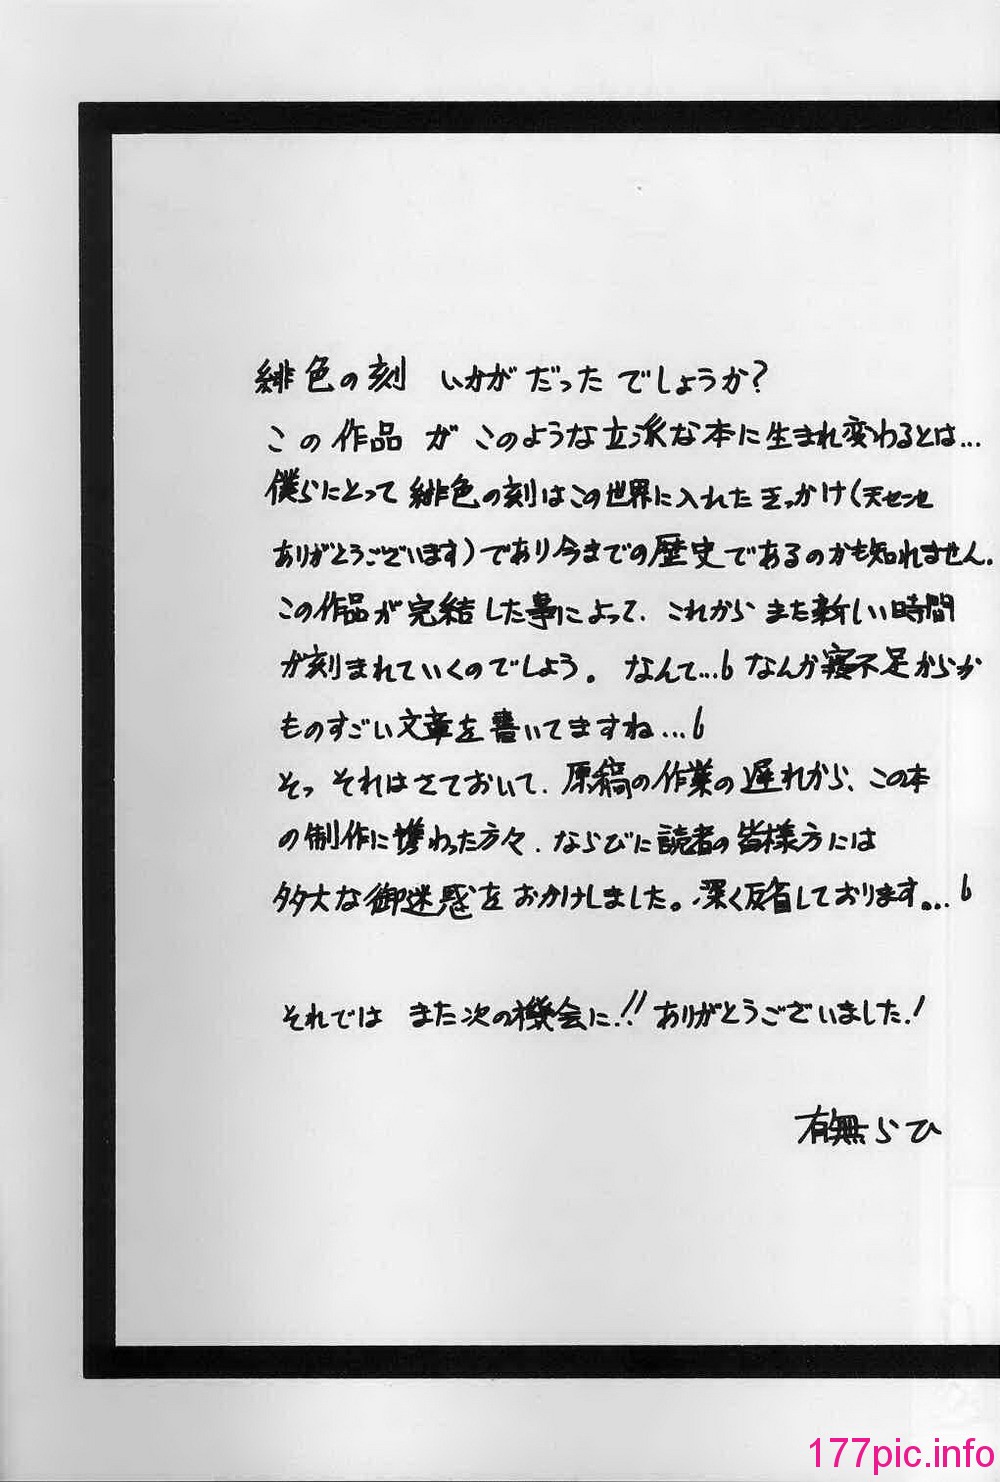 緋色の刻 いかがだったでしょうか?
この作品が このような立派な本に生まれ変わるとは…
僕らにとって緋色の刻はこの世界に入れたきっかけ(天センセ
ありがとうございます)であり今までの歴史であるのかも知れません.
この作品が完結した事によって、これからまた新しい時間
が刻まれていくのでしょう。なんて…6 なんか寝不足からか
ものすごい文章を書いてますね…6
そっ それはさておいて、原稿の作業の遅れから、この本
の制作に携わった方々、ならびに読者の皆様方には
多大な御迷惑をおかけしました。深く反省しております…6
それでは また次の機会に!! ありがとうございました!
有無らひ
177pic.info